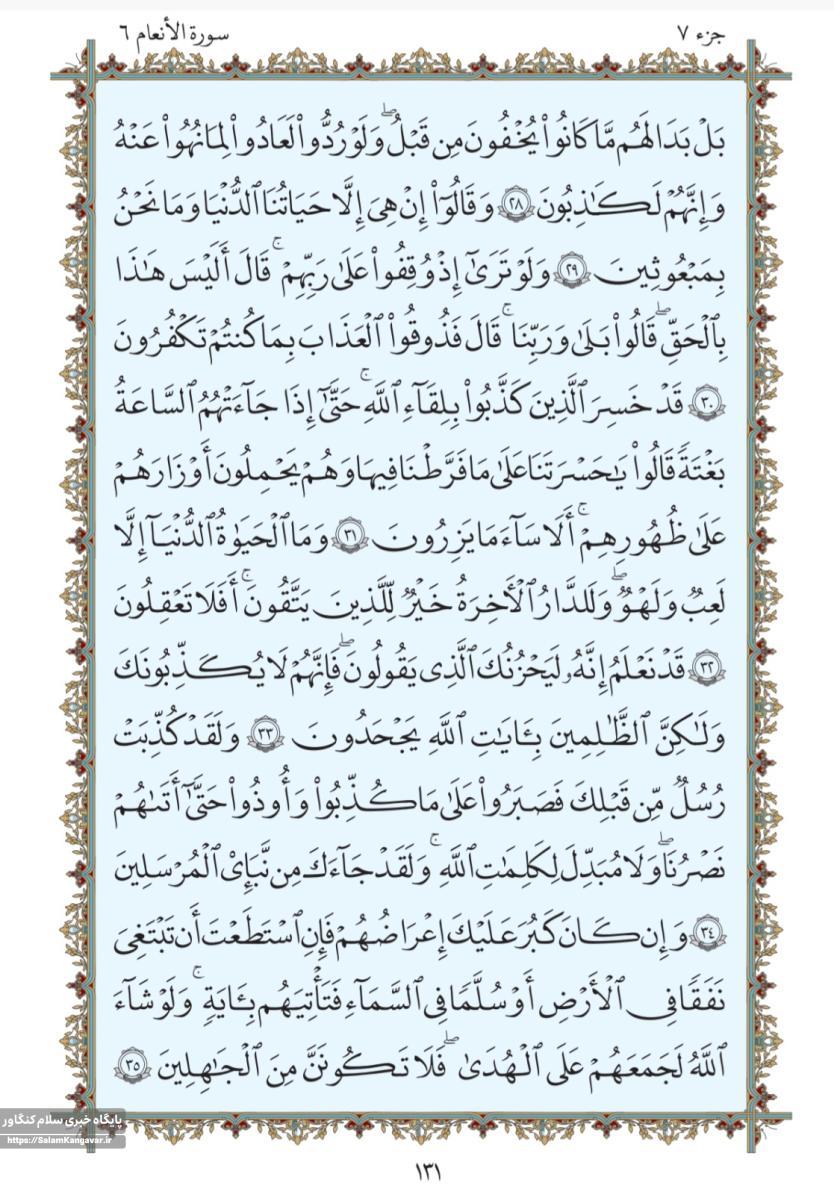 جزء ٧
سورة الأنعام ٦
بَلْ بَدَا لَهُم مَّا كَانُوا۟ يُخْفُونَ مِن قَبْلُ ۖ وَلَوْ رُدُّوا۟ لَعَادُوا۟ لِمَا نُهُوا۟ عَنْهُ
وَإِنَّهُمْ لَكَـٰذِبُونَ ٢٨ وَقَالُوٓا۟ إِنْ هِىَ إِلَّا حَيَاتُنَا ٱلدُّنْيَا وَمَا نَحْنُ
بِمَبْعُوثِينَ ٢٩ وَلَوْ تَرَىٰٓ إِذْ وُقِفُوا۟ عَلَىٰ رَبِّهِمْ ۚ قَالَ أَلَيْسَ هَـٰذَا
بِٱلْحَقِّ ۖ قَالُوا۟ بَلَىٰ وَرَبِّنَا ۚ قَالَ فَذُوقُوا۟ ٱلْعَذَابَ بِمَا كُنتُمْ تَكْفُرُونَ
٣٠ قَدْ خَسِرَ ٱلَّذِينَ كَذَّبُوا۟ بِلِقَآءِ ٱللَّهِ ۚ حَتَّىٰٓ إِذَا جَآءَتْهُمُ ٱلسَّاعَةُ
بَغْتَةً قَالُوا۟ يَـٰحَسْرَتَنَا عَلَىٰ مَا فَرَّطْنَا فِيهَا وَهُمْ يَحْمِلُونَ أَوْزَارَهُمْ
عَلَىٰ ظُهُورِهِمْ ۚ أَلَا سَآءَ مَا يَزِرُونَ ٣١ وَمَا ٱلْحَيَوٰةُ ٱلدُّنْيَآ إِلَّا
لَعِبٌ وَلَهْوٌ ۖ وَلَلدَّارُ ٱلْأَخِرَةُ خَيْرٌ لِّلَّذِينَ يَتَّقُونَ ۚ أَفَلَا تَعْقِلُونَ
٣٢ قَدْ نَعْلَمُ إِنَّهُۥ لَيَحْزُنُكَ ٱلَّذِى يَقُولُونَ ۖ فَإِنَّهُمْ لَا يُكَذِّبُونَكَ
وَلَـٰكِنَّ ٱلظَّـٰلِمِينَ بِـَٔايَـٰتِ ٱللَّهِ يَجْحَدُونَ ٣٣ وَلَقَدْ كُذِّبَتْ
رُسُلٌ مِّن قَبْلِكَ فَصَبَرُوا۟ عَلَىٰ مَا كُذِّبُوا۟ وَأُوذُوا۟ حَتَّىٰٓ أَتَىٰهُمْ
نَصْرُنَا ۖ وَلَا مُبَدِّلَ لِكَلِمَـٰتِ ٱللَّهِ ۚ وَلَقَدْ جَآءَكَ مِن نَّبَإِى۟ ٱلْمُرْسَلِينَ
٣٤ وَإِن كَانَ كَبُرَ عَلَيْكَ إِعْرَاضُهُمْ فَإِنِ ٱسْتَطَعْتَ أَن تَبْتَغِىَ
نَفَقًا فِى ٱلْأَرْضِ أَوْ سُلَّمًا فِى ٱلسَّمَآءِ فَتَأْتِيَهُم بِـَٔايَةٍ ۚ وَلَوْ شَآءَ
ٱللَّهُ لَجَمَعَهُمْ عَلَى ٱلْهُدَىٰ ۚ فَلَا تَكُونَنَّ مِنَ ٱلْجَـٰهِلِينَ ٣٥
پایگاه خبری سلام کنگاور
https://SalamKangavar.ir
١٣١